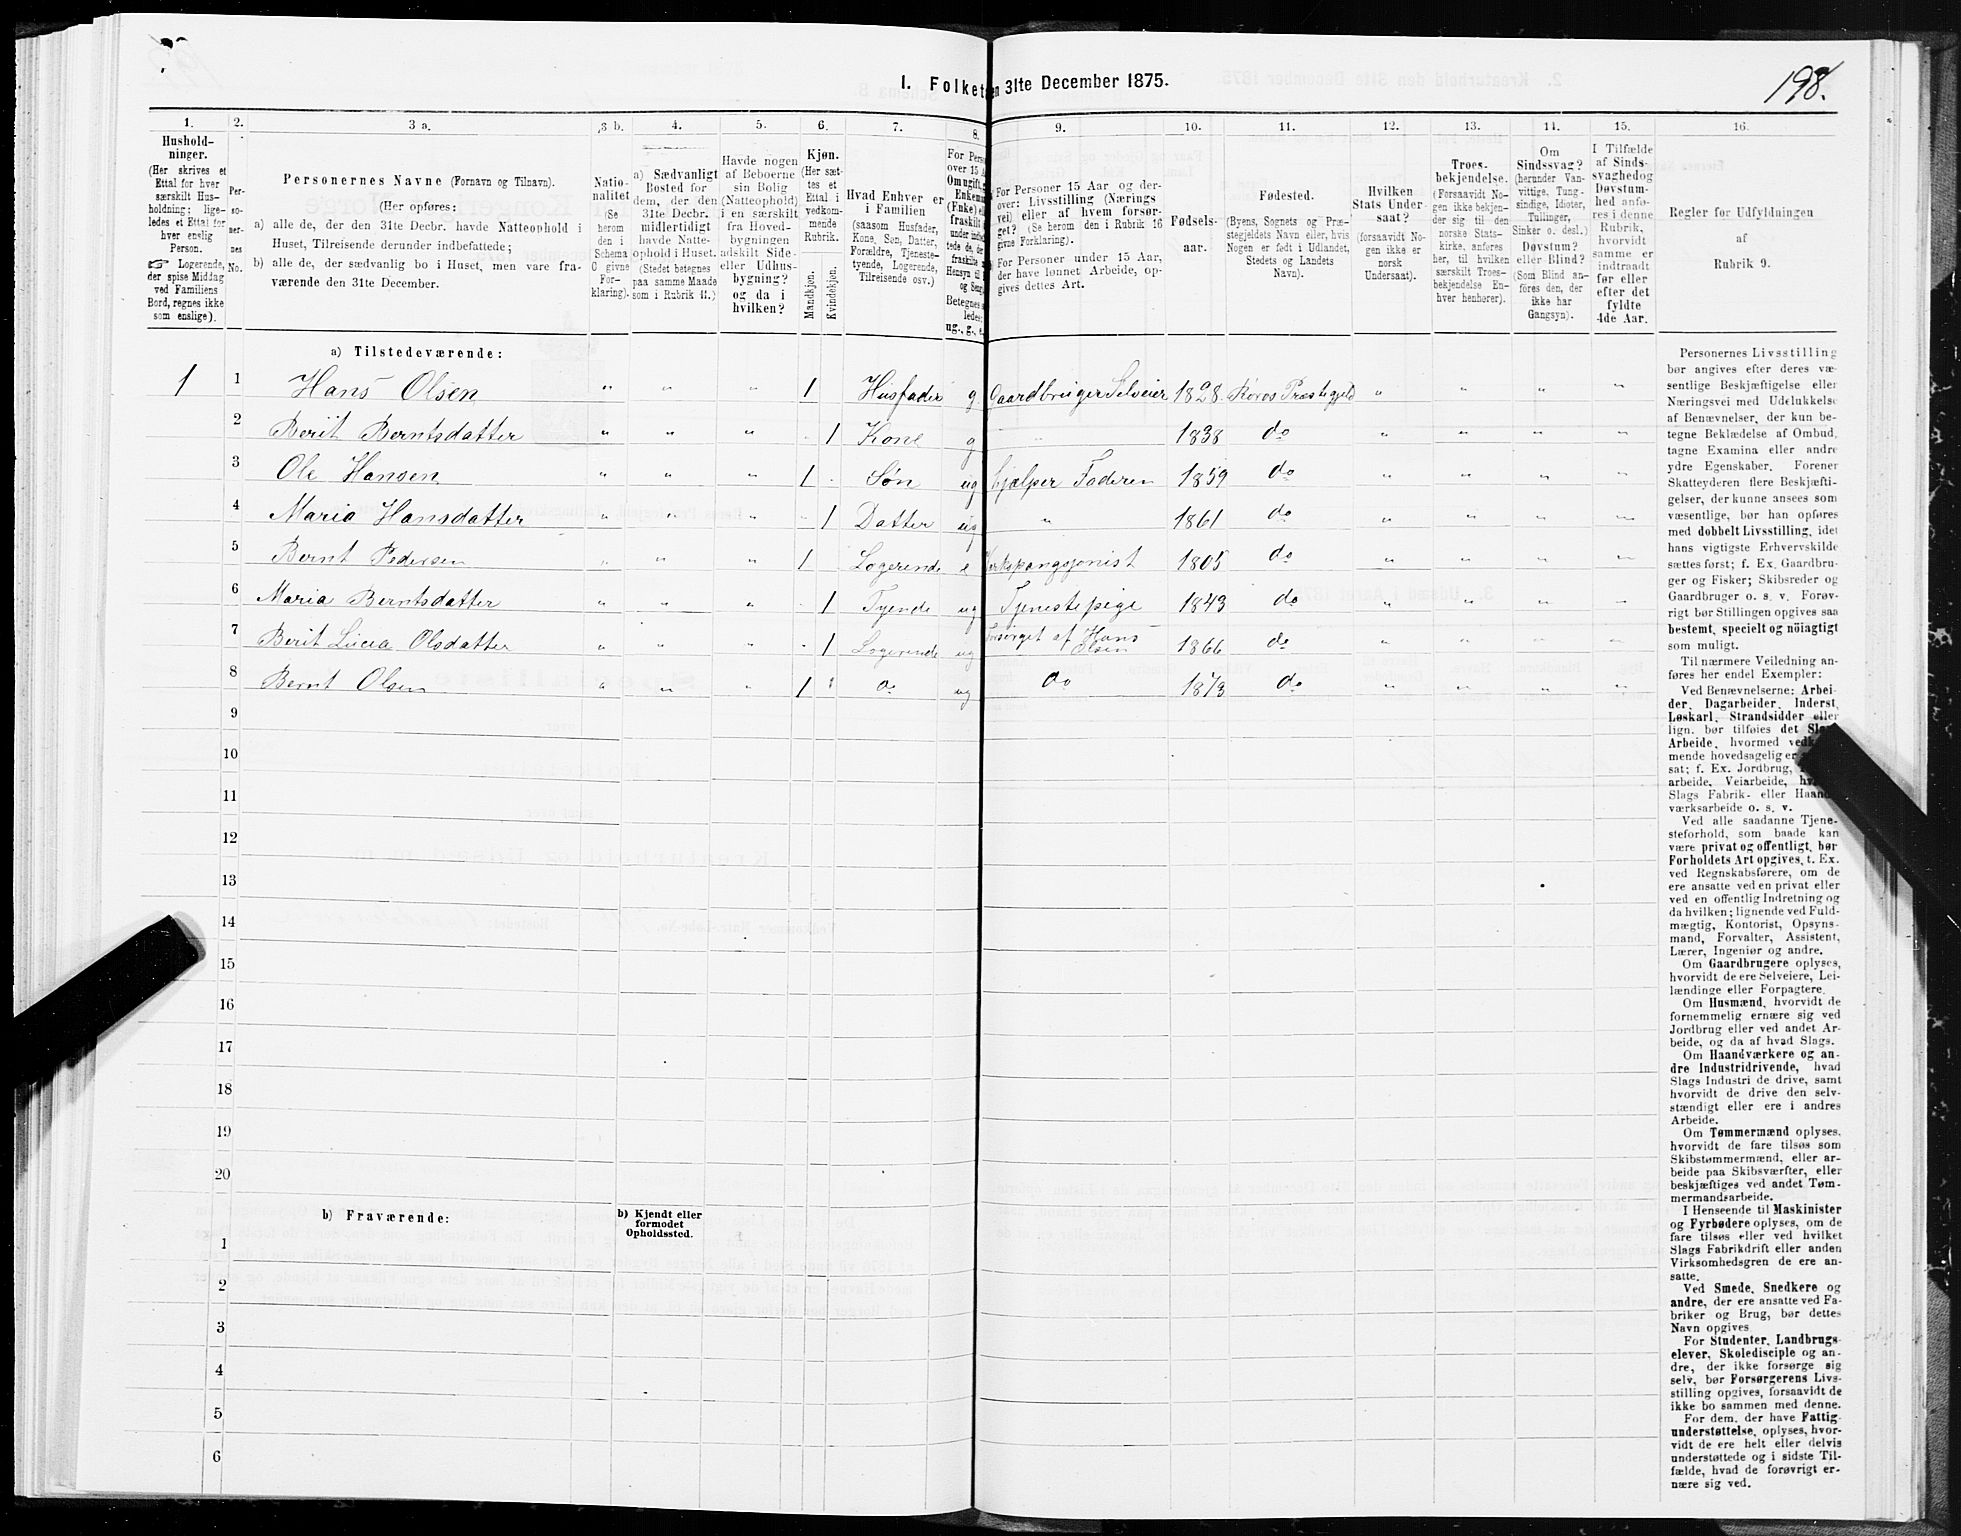 198.
1. Folket en 31te December 1875.
1.
Hushold-
ninger.
(Her skrives et
Ettal for hver
særskilt Hus-
holdning; lige-
ledes et Ettal for
hver enslig
Person.
☞ Logerende,
der spise Middag
ved Familiens
Bord, regnes ikke
som enslige).
2.
Per-
so-
ner-
nes
No.
3 a.
Personernes Navne (Fornavn og Tilnavn).
(Her opføres:
a) alle de, der den 31te Decbr. havde Natteophold i
Huset, Tilreisende derunder indbefattede;
b) alle de, der sædvanlig bo i Huset, men vare fra-
værende den 31te December.
3 b.
Natio-
nalitet
(Se
herom
den i
Schema
C givne
For-
klaring).
4.
a) Sædvanligt
Bosted for
dem, der den
31te Decbr.
midlertidigt
havde Natte-
ophold i Huset.
(Stedet betegnes
paa samme Maade
som i Rubrik 11.)
5.
Havde nogen
af Beboerne
sin Bolig
(Natteophold)
i en særskilt
fra Hoved-
bygningen
adskilt Side-
eller Udhus-
bygning?
og da i
hvilken?
6.
Kjøn.
(Her sæt-
tes et
Ettal i
vedkom-
mende
Rubrik.
Mandkjøn.
Kvindekjøn.
7.
Hvad Enhver er
i Familien
(saasom Husfader,
Kone, Søn, Datter,
Forældre, Tjeneste-
tyende, Logerende,
Tilreisende osv.)
8.
For Pers
over 15 A
Om ugift, g
Enkem
(Enke) el
fraskilt
under indb
tede de, de
fraskilte
Hensyn til
og Seng
Betegnes s
ledes:
ug., g., e.
9.
For Personer 15 Aar og der-
over: Livsstilling (Nærings
vei) eller af hvem forsør-
get? (Se herom den i Rubrik 16
givne Forklaring).
For Personer under 15 Aar,
der have lønnet Arbeide, op-
gives dettes Art.
10.
Fødsels-
aar.
11.
Fødested.
(Byens, Sognets og Præ-
stegjeldets Navn eller, hvis
Nogen er født i Udlandet,
Stedets og Landets
Navn).
12.
Hvilken
Stats Under-
saat?
(forsaavidt No-
gen ikke er
norsk
Undersaat).
13.
Troes-
bekjendelse.
(Forsaavidt No-
gen ikke bekjen-
der sig til den
norske Stats-
kirke, anføres
her, til hvilken
særskilt Troes-
bekjendelse En-
hver henhører).
14.
Om
Sindssvag?
(herunder Van-
vittige, Tung-
sindige, Idioter,
Tullinger,
Sinker o. desl.)
Døvstum?
eller Blind?
(Som Blind an-
føres den, der
ikke har
Gangsyn).
15.
I Tilfælde
af Sinds-
svaghed og
Døvstum-
hed anfø-
res i denne
Rubrik,
hvorvidt
samme er
indtraadt
før eller
efter det
fyldte
4de Aar.
16.
Regler for Udfyldningen
af
Rubrik 9.
a) Tilstedeværende:
1 1 Hans Olsen " " " 1 Husfader g Gaardbruger Selveier 1828 Røros Præstegjeld " " " "
2 Berit Berntsdatter " " " " 1 Kone g " 1838 do " " " "
3 Ole Hansen " " " 1 " Søn ug hjælper Faderen 1859 do " " " "
4 Maria Hansdatter " " " " 1 Datter ug " 1861 do " " " "
5 Bernt Pedersen " " " 1 Logerende e Verkspangsjonist 1805 do " " " "
6 Maria Berntsdatter " " " " 1 Tyende ug Tjenestepige 1843 do " " " "
7 Berit Lucia Olsdatter " " " " 1 Logerende ug Forsørget af Hans Olsen 1866 do " " " "
8 Bernt Olsen " " " 1 " do ug do 1873 do " " " "
9
10
11
12
13
14
15
16
17
18
19
20
b) Fraværende:
b) Kjendt eller
formodet
Opholdssted.
1
2
3
4
5
6
Personernes Livsstilling
bør angives efter deres væ-
sentlige Beskjæftigelse eller
Næringsvei med Udelukkelse
af Benævnelser, der kun be-
tegne Beklædelse af Ombud,
tagne Examina eller andre
ydre Egenskaber. Forener
Skatteyderen flere Beskjæfti-
gelser, der kunne ansees som
væsentlige, bør han opføres
med dobbelt Livsstilling, idet
hans vigtigste Erhvervskilde
sættes først; f. Ex. Gaardbru-
ger og Fisker; Skibsreder og
Gaardbruger o. s. v. Forøv-
rigt bør Stillingen opgives saa
bestemt, specielt og nöiagtigt
som muligt.
Til nærmere Veiledning an-
føres her endel Exempler:
Ved Benævnelserne: Arbei-
der, Dagarbeider, Inderst,
Løskarl, Strandsidder eller
lign. bør tilføies det Slags
Arbeide, hvormed vedkom-
mende hovedsagelig er
sat; f. Ex. Jordbrug,
arbeide, Veiarbeide,
Slags Fabrik- eller Haand-
værksarbeide o. s. v.
Ved alle saadanne Tjene-
steforhold, som baade kan
være privat og offentligt, bør
Forholdets Art opgives, t. Ex.
ved Regnskabsførere, om de
ere ansatte ved en privat eller
ved en offentlig Indretning og
da hvilken; lignende ved Fuld-
mægtig, Kontorist, Opsyns-
mand, Forvalter, Assistent,
Lærer, Ingeniør og andre.
Om Gaardbrugere oplyses,
hvorvidt de ere Selveiere, Lei-
lændinge eller Forpagtere.
Om Husmænd, hvorvidt de
fornemmelig ernære sig ved
Jordbrug eller ved andet Ar-
beide, og da af hvad Slags.
Om Haandværkere og an-
dre Industridrivende, hvad
Slags Industri de drive, samt
hvorvidt de drive den selv-
stændigt eller ere i andres
Arbeide.
Om Tømmermænd oplyses,
hvorvidt de fare tilsøs som
Skibstømmermænd, eller ar-
beide paa Skibsværfter, eller
beskjæftiges ved andet Tøm-
mermandsarbeide.
I Henseende til Maskinister
og Fyrbødere oplyses, om de
fare tilsøs eller ved hvilket
Slags Fabrikdrift eller anden
Virksomhedsgren de ere an-
satte.
Ved Smede, Snedkere og
andre, der ere ansatte ved Fa-
briker og Brug, bør dettes
Navn opgives
For Studenter, Landbrugs-
elever, Skoledisciple og an-
dre, der ikke forsørge sig
selv, bør Forsørgerens Livs-
stilling opgives, forsaavidt de
ikke bo sammen med denne.
For dem, der have Fattig-
understøttelse, oplyses, hvor-
vidt de ere helt eller delvis
understøttede og i sidste Til-
fælde, hvad de forøvrigt er-
nære sig ved.